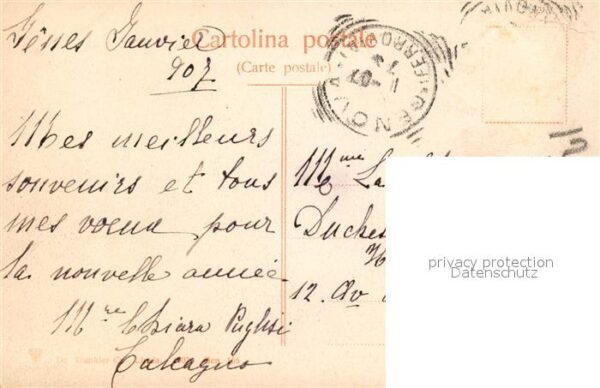 Gênes Janvier
907
Cartolina postale
(Carte postale)
GENOVA FERROVIA
1-07
Mes meilleurs
souvenirs et tous
mes voeux pour
la nouvelle année
Mre Chiara Puglisi
Calcagno
Mme La
Duches
12. Av
privacy protection
Datenschutz